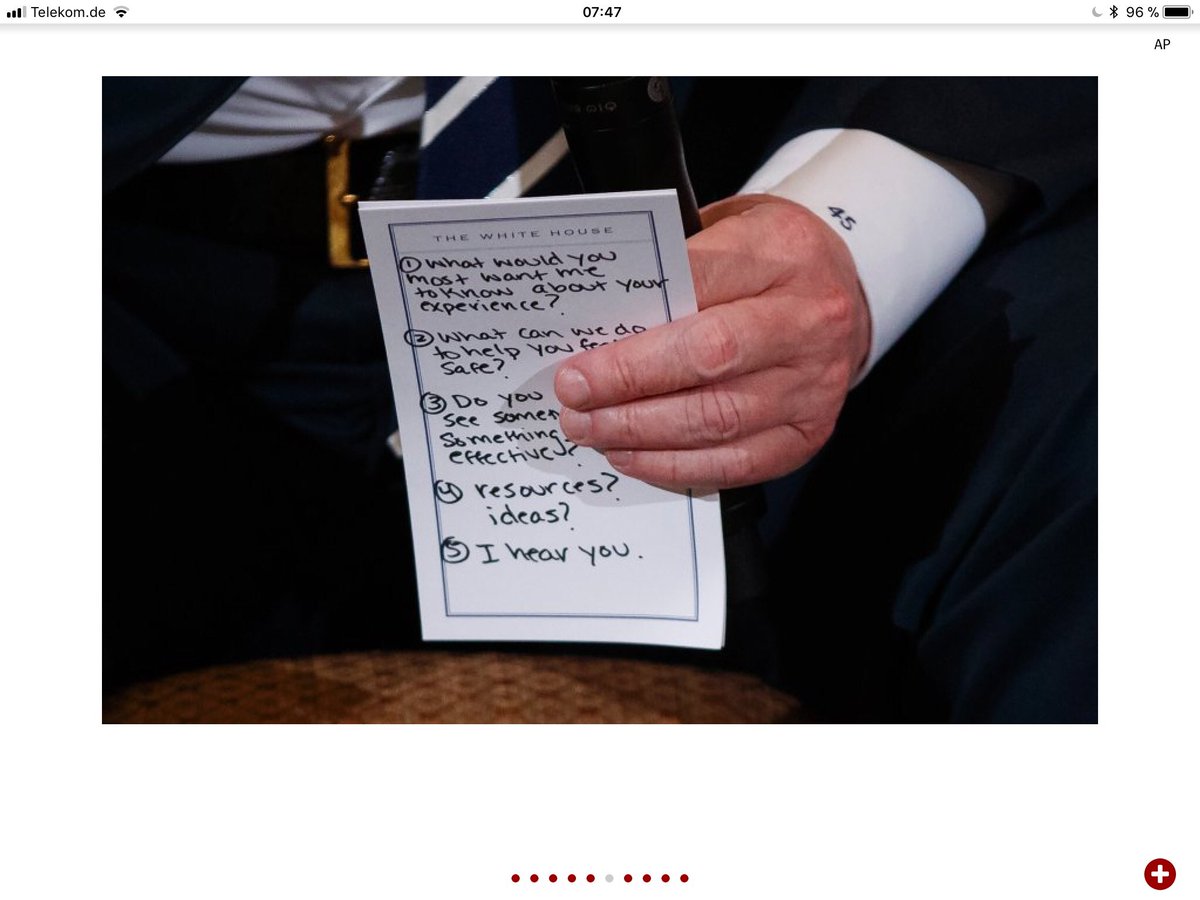 Telekom.de
07:47
96 %
AP
45
THE WHITE HOUSE
① What would you
most want me
to know about your
experience?
② What can we do
to help you
safe?
③ Do you
see
something
effective?
④ resources?
ideas?
⑤ I hear you.